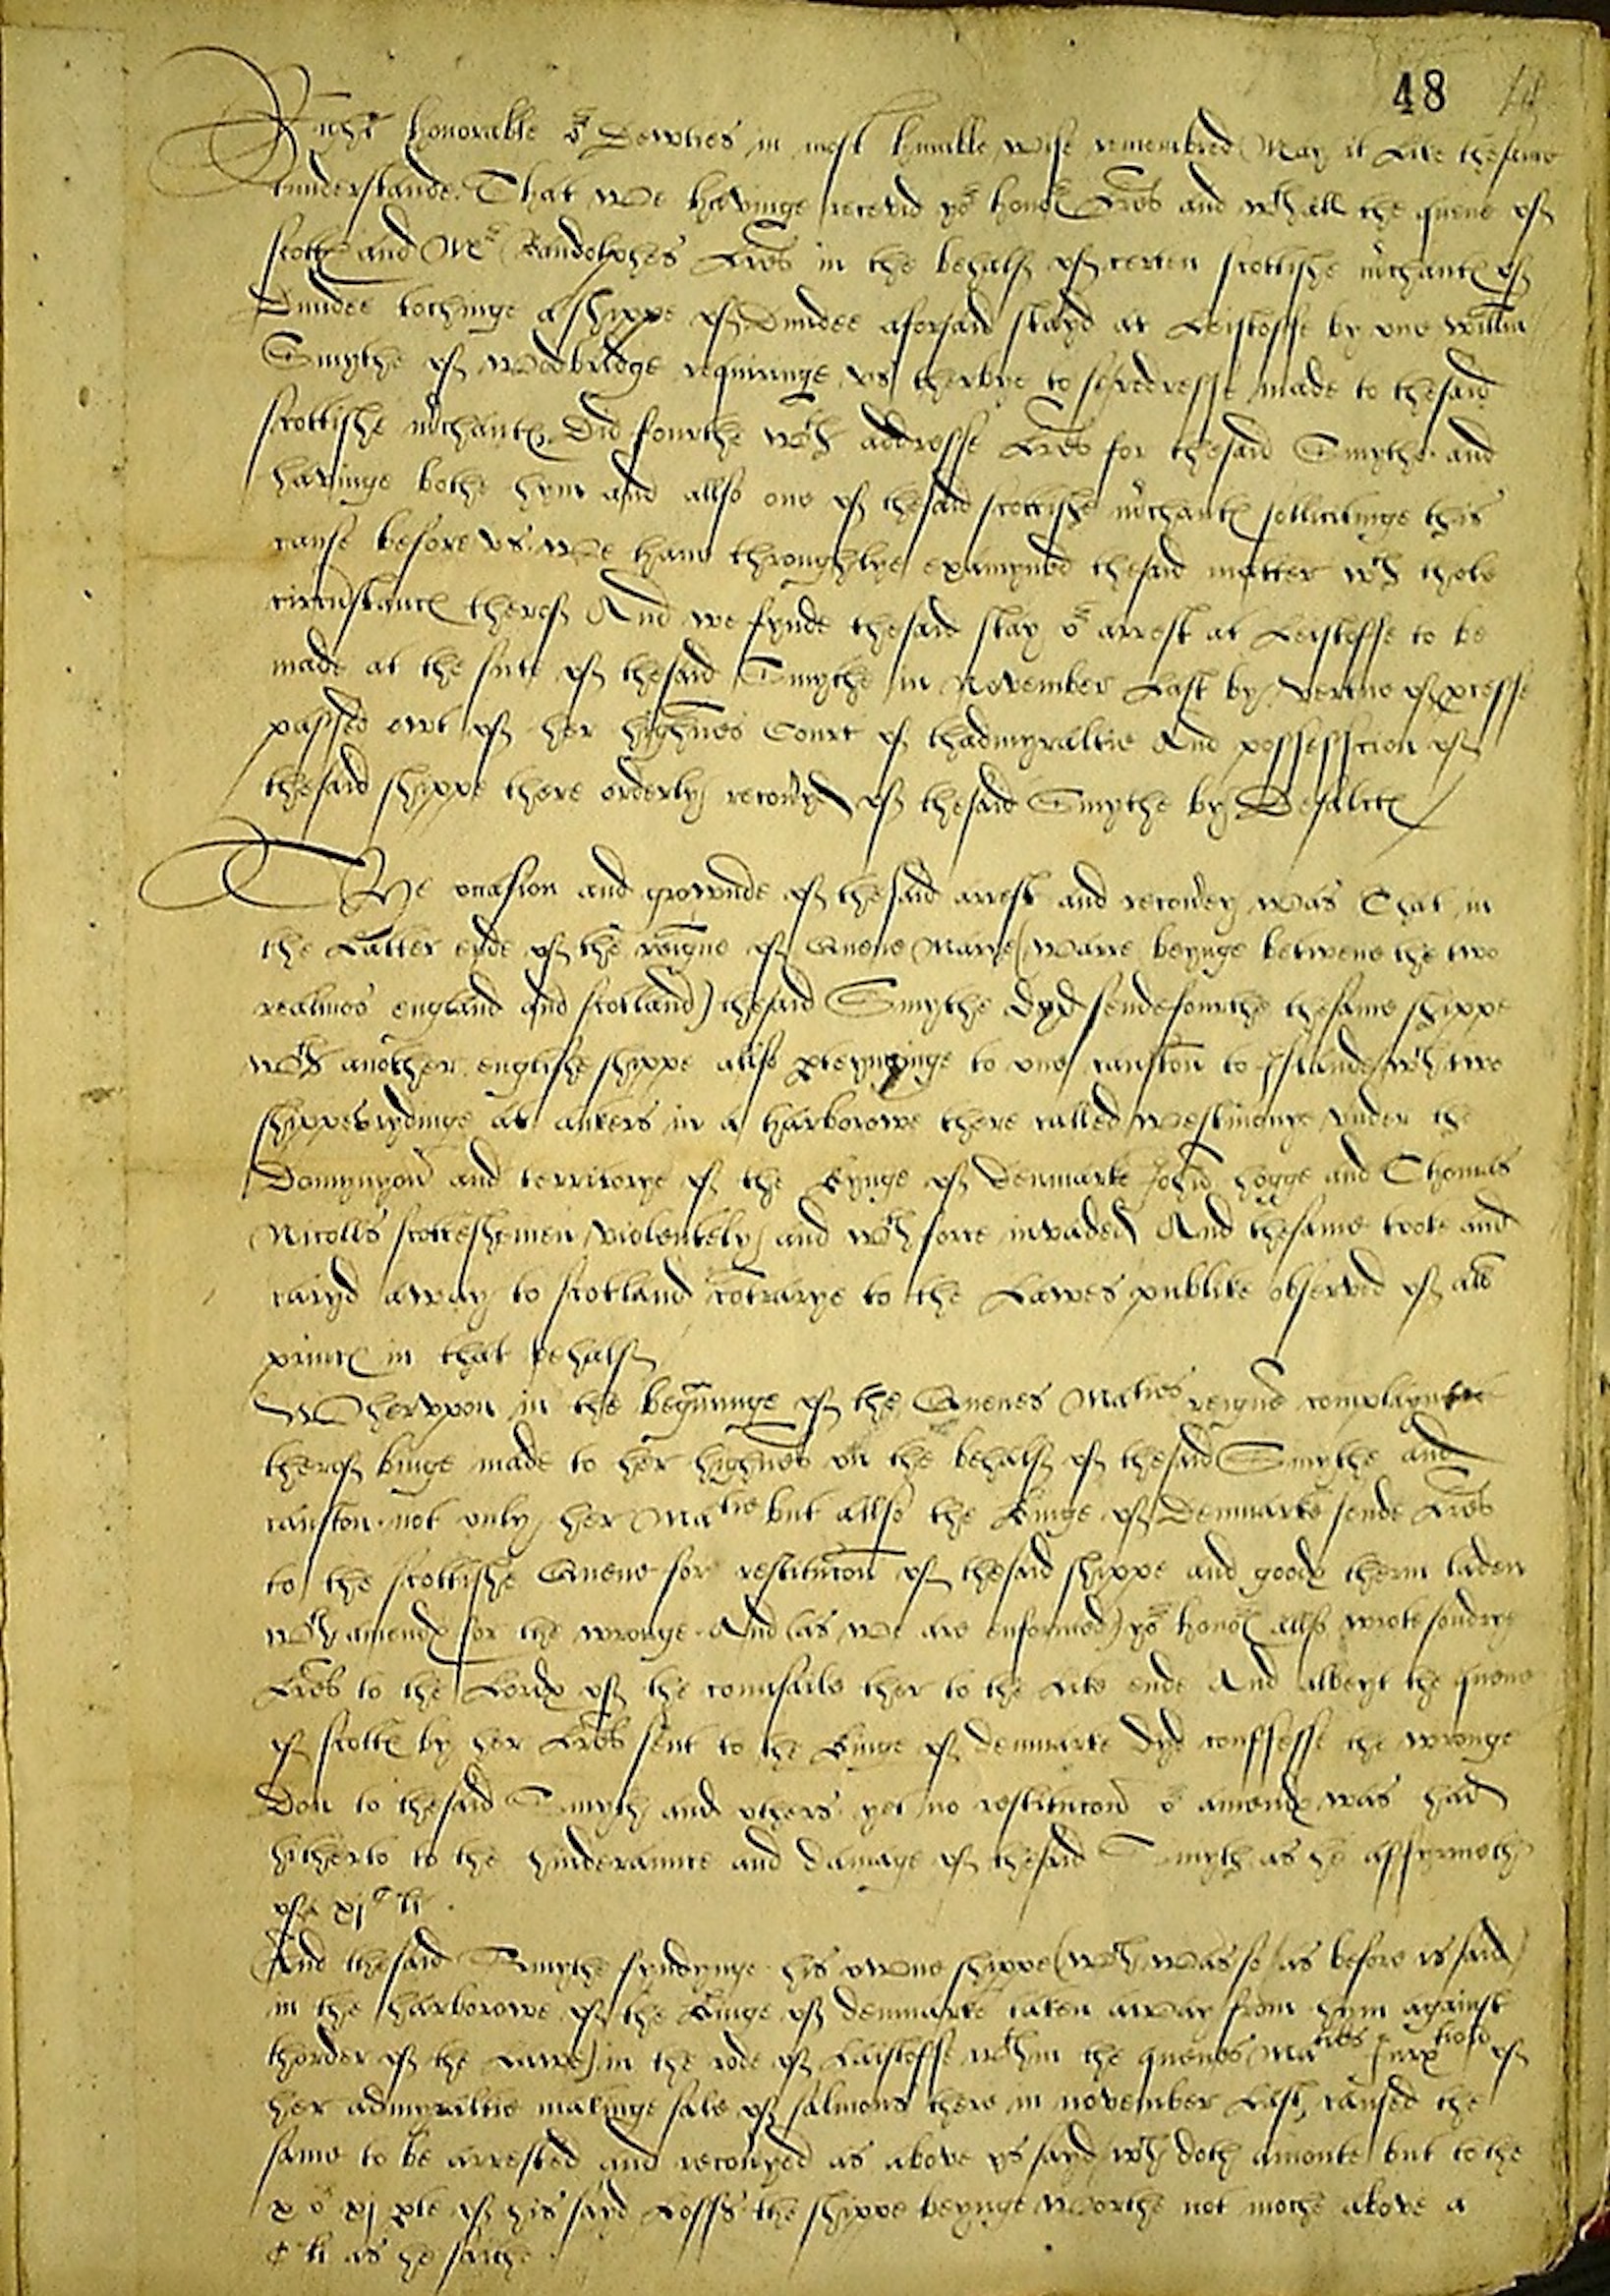 48
Right honorable or Dewties in most humble wise remembred May it Like thesame
tunderstande. That we havinge receved yor honors Lres and wth all the quene of
scottes and Mr Randolphes Lres in the behalf of certen scottishe mrchantes of
Dundee tochinge a shippe of Dundee aforsaid stayd at Leistoffe by one Willm
Smythe of Woodbridge requiringe us therbye to se redresse made to thesaid
scottishe mrchantes. Did fourthe wth addresse Lres for thesaid Smythe. and
havinge bothe hym and allso one of thesaid scottishe mrchantes sollicitinge this
cause before us. We have throughlye examyned thesaid matter wth thole
circumstances therof And we fynde thesaid stay or arrest at Leistoffe to be
made at the sute of thesaid Smythe in November Last by vertue of processe
passed owt of her highnes Court of thadmyraltie And possession of
thesaid shippe there orderly recoveryd of thesaid Smythe by Defaltes
The occasion and grownde of thesaid arrest and recovery was That in
the Latter ende of the reigne of Quene Marye (Warre beynge betwene the two
realmes england and scotland) thesaid Smythe dyd sende fourthe thesame shippe
wth another englishe shippe allso perteynynge to one to Islande wch two
shippes rydinge at ankers in a harborowe there called Westmonye under the
Domynyon and territorye of the Kynge of Denmarke John hogge and Thomas
Nicolls scotteshemen violentely and wth force invaded And thesame tooke and
caryd away to scotland contrarye to the Lawes publike observed of all
princes in that behalf
Wherupon in the begynninge of the Quenes Maties reigne complaynte
therof beinge made to her highnes on the behalf of thesaid Smythe and
not only her Matie but allso the Kinge of Denmarke sende Lres
to the scottishe Quene for restitucon of thesaid shippe and goodes therin laden
wth amendes for the wronge. And (as we are enformed) yor honors allso wrote sondrye
Lres to the Lordes of the counsaile ther to the Like ende And albeyt the quene
of scottes by her Lres sent to the Kinge of denmarke dyd confesse the wronge
Don to thesaid Smyth and others yet no restitucon or amendes was had
hitherto to the hinderaunce and damage of thesaid Smyth as he affyrmeth
of xjC li.
And thesaid Smythe fyndynge his owne shippe (wch was so as before is said
in the harborowe of the Kinge of denmarke taken away from hym against
thorder of the Lawe) in the rode of Leistoffe wthin the quenes Maties Jurisdiction of
her admyraltie makinge sale of salmons there in november Last, caused the
same to be arrested and recoveryed as above ys sayd wch doth amonte but to the
x or xj parte of his sayd Losse the shippe beynge worthe not moche above a
C li as he saithe.